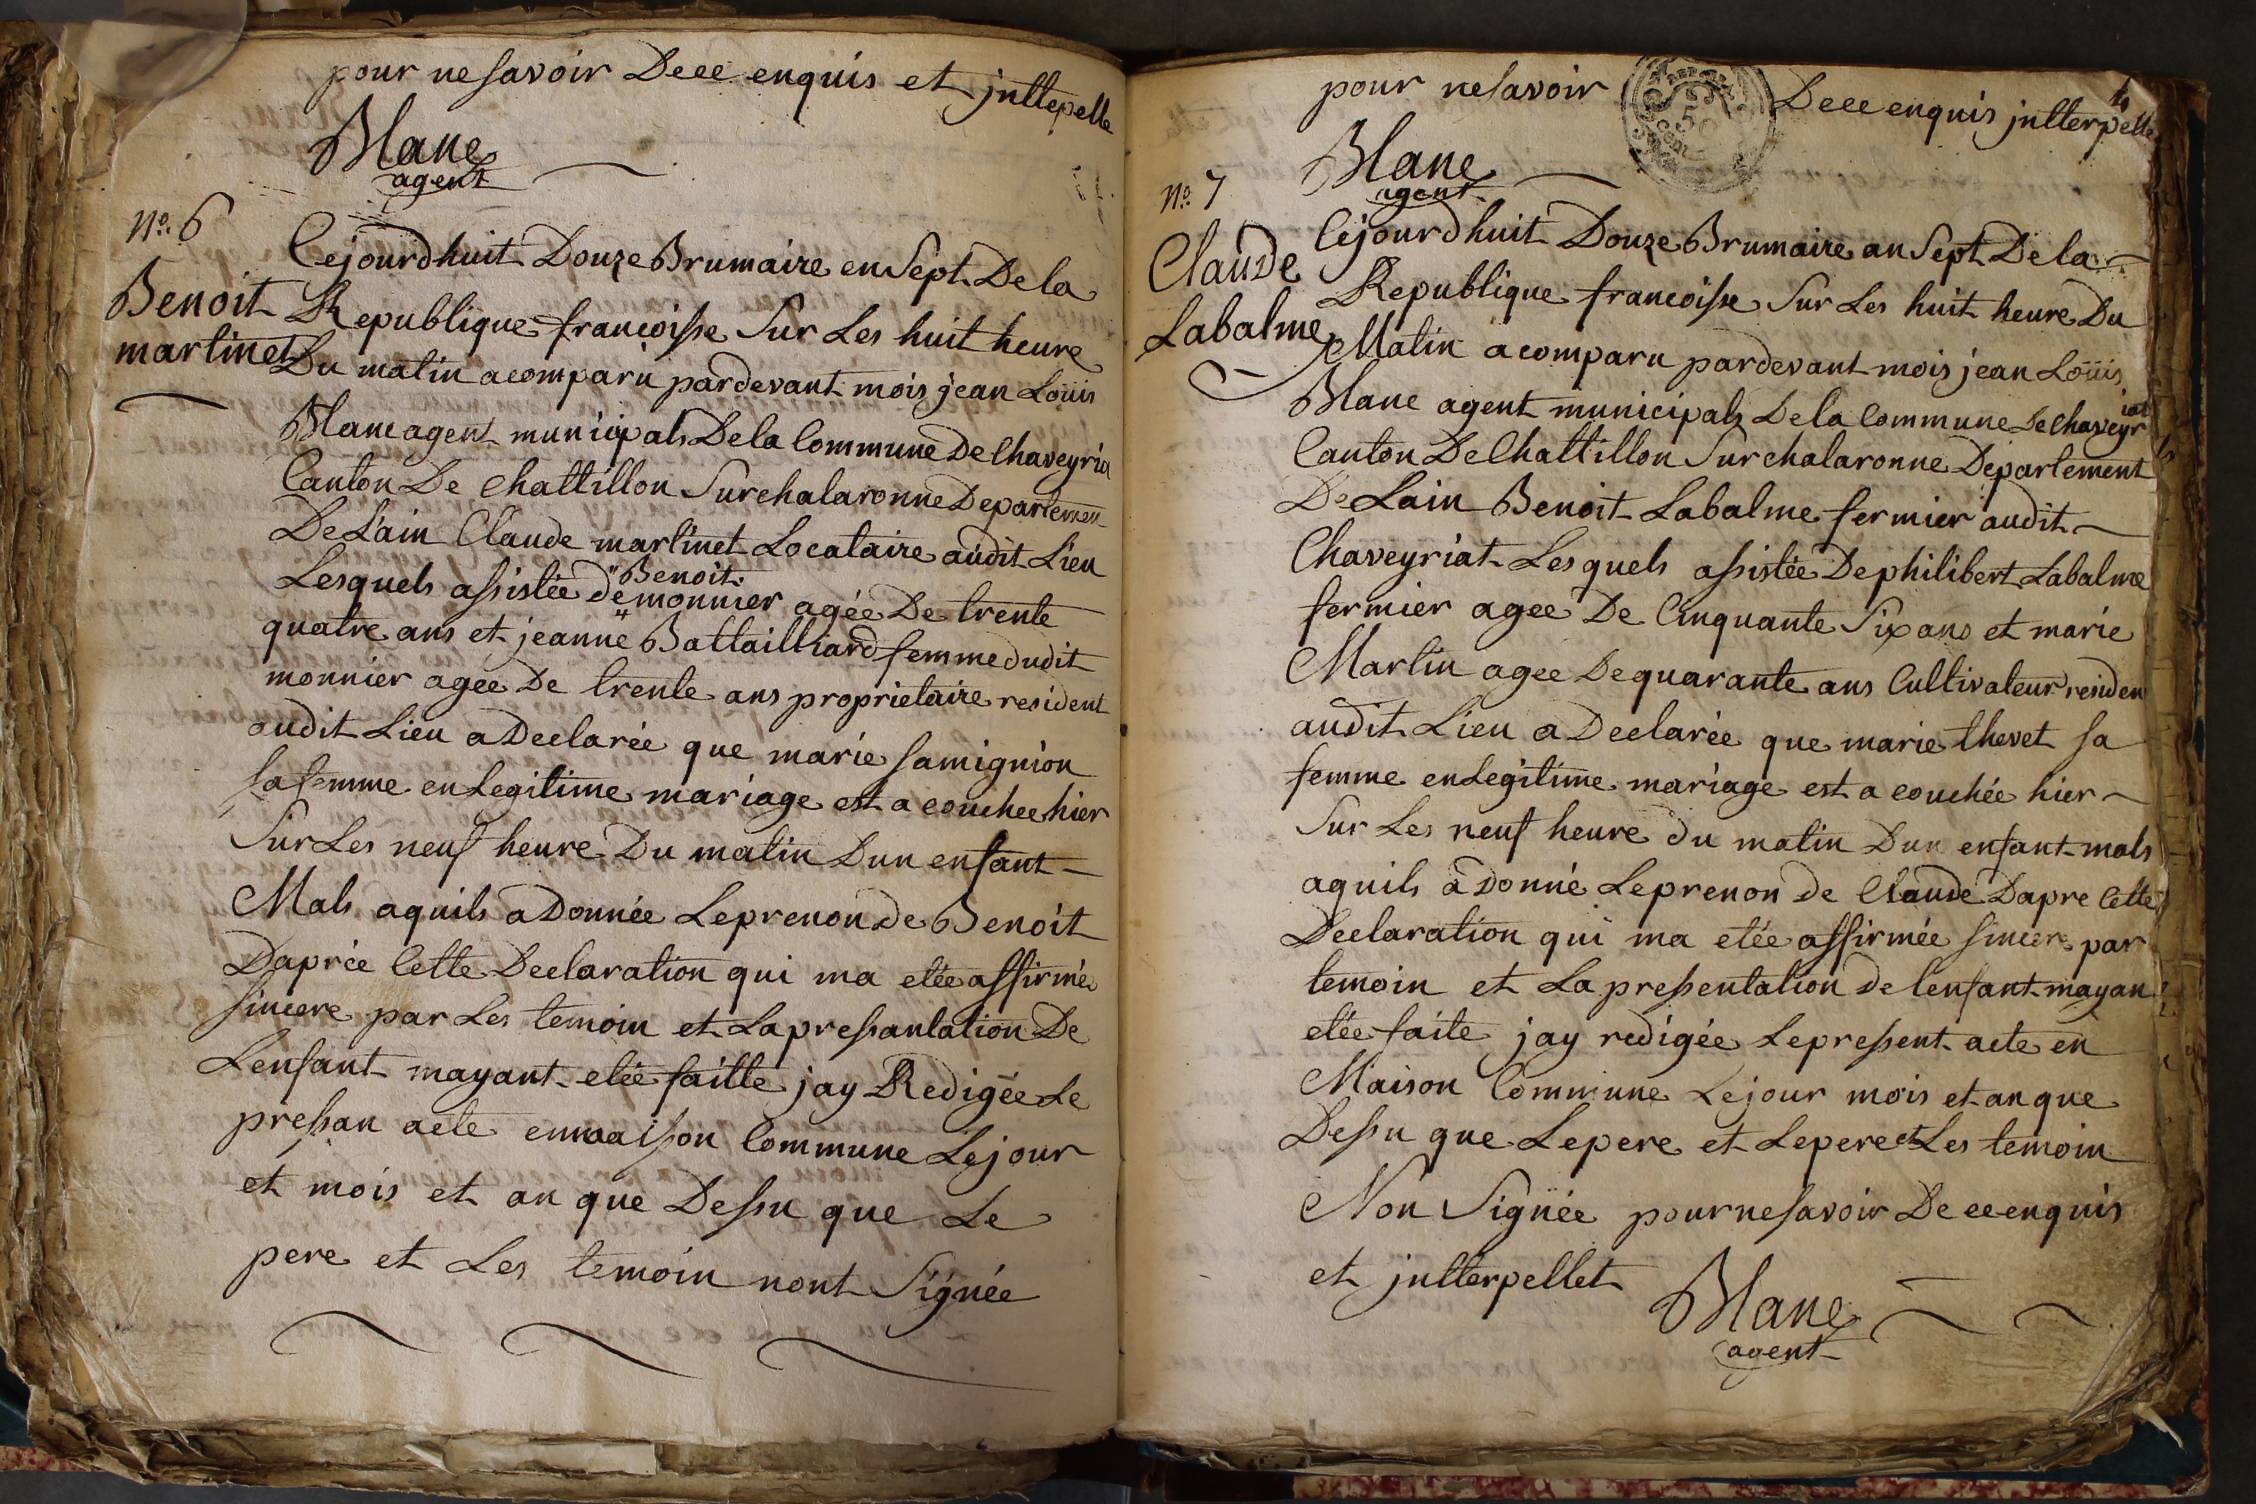 pour ne savoir De ce enquis et jntterpelle
Blanc
agent
N.o 6
Benoit
martinet
Cejourdhuit Douze Brumaire en Sept De la
Republique francoisse Sur Les huit heure
Du matin acomparu pardevant mois jean Loüis
Blanc agent municipals De la Commune De Chaveyria
Canton De Chattillon Sur chalaronne Departemen
De Lain Claude martinet Locataire audit Lieu
Lesquels assistée de "Benoit" monnier agée De trente
quatre ans et jeanne Battailliard femme dudit
monnier agee De trente ans proprietaire resident
audit Lieu a Declarée que marie samignion
sa femme en Legitime mariage est a couchee hier
Sur Les neuf heure Du matin Dun enfant
Mals aquils a Donnée Le prenon de Benoit
Daprée Cette Declaration qui ma etée affirmée
sincere par Les temoin et La pressantation De
Lenfant mayant etée faitte jay Redigée Le
pressan acte en maaison Commune Le jour
et mois et an que Dessu que Le
pere et Les temoin nont Signée
pour ne savoir De ce enquis jntterpelle
Blanc
agent
N.o 7
Claude
Labalme
Cejourdhuit Douze Brumaire an Sept De la
Republique francoisse Sur Les huit heure Du
Matin acomparu pardevant mois jean Loüis
Blanc agent municipals De la Commune De Chaveyriat
Canton De Chattillon Sur chalaronne Departement
De Lain Benoit Labalme fermier audit
Chaveyriat Lesquels assistée De philibert Labalme
fermier agee De Cinquante Six ans et marie
Martin agee De quarante ans Cultivateur residen
audit Lieu a Declarée que marie thevet sa
femme en Legitime mariage est a couchée hier
Sur Les neuf heure du matin Dun enfant mals
aquils a donné Le prenon de Claude Dapre Cette
Declaration qui ma etée affirmée sincere par
temoin et La pressentation de Lenfant mayan
etée faite jay redigée Le pressent acte en
Maison Commune Le jour mois et an que
Dessu que Le pere et Le pere et Les temoin
Non Signée pour ne savoir De ce enquis
et jntterpellet
Blanc
agent